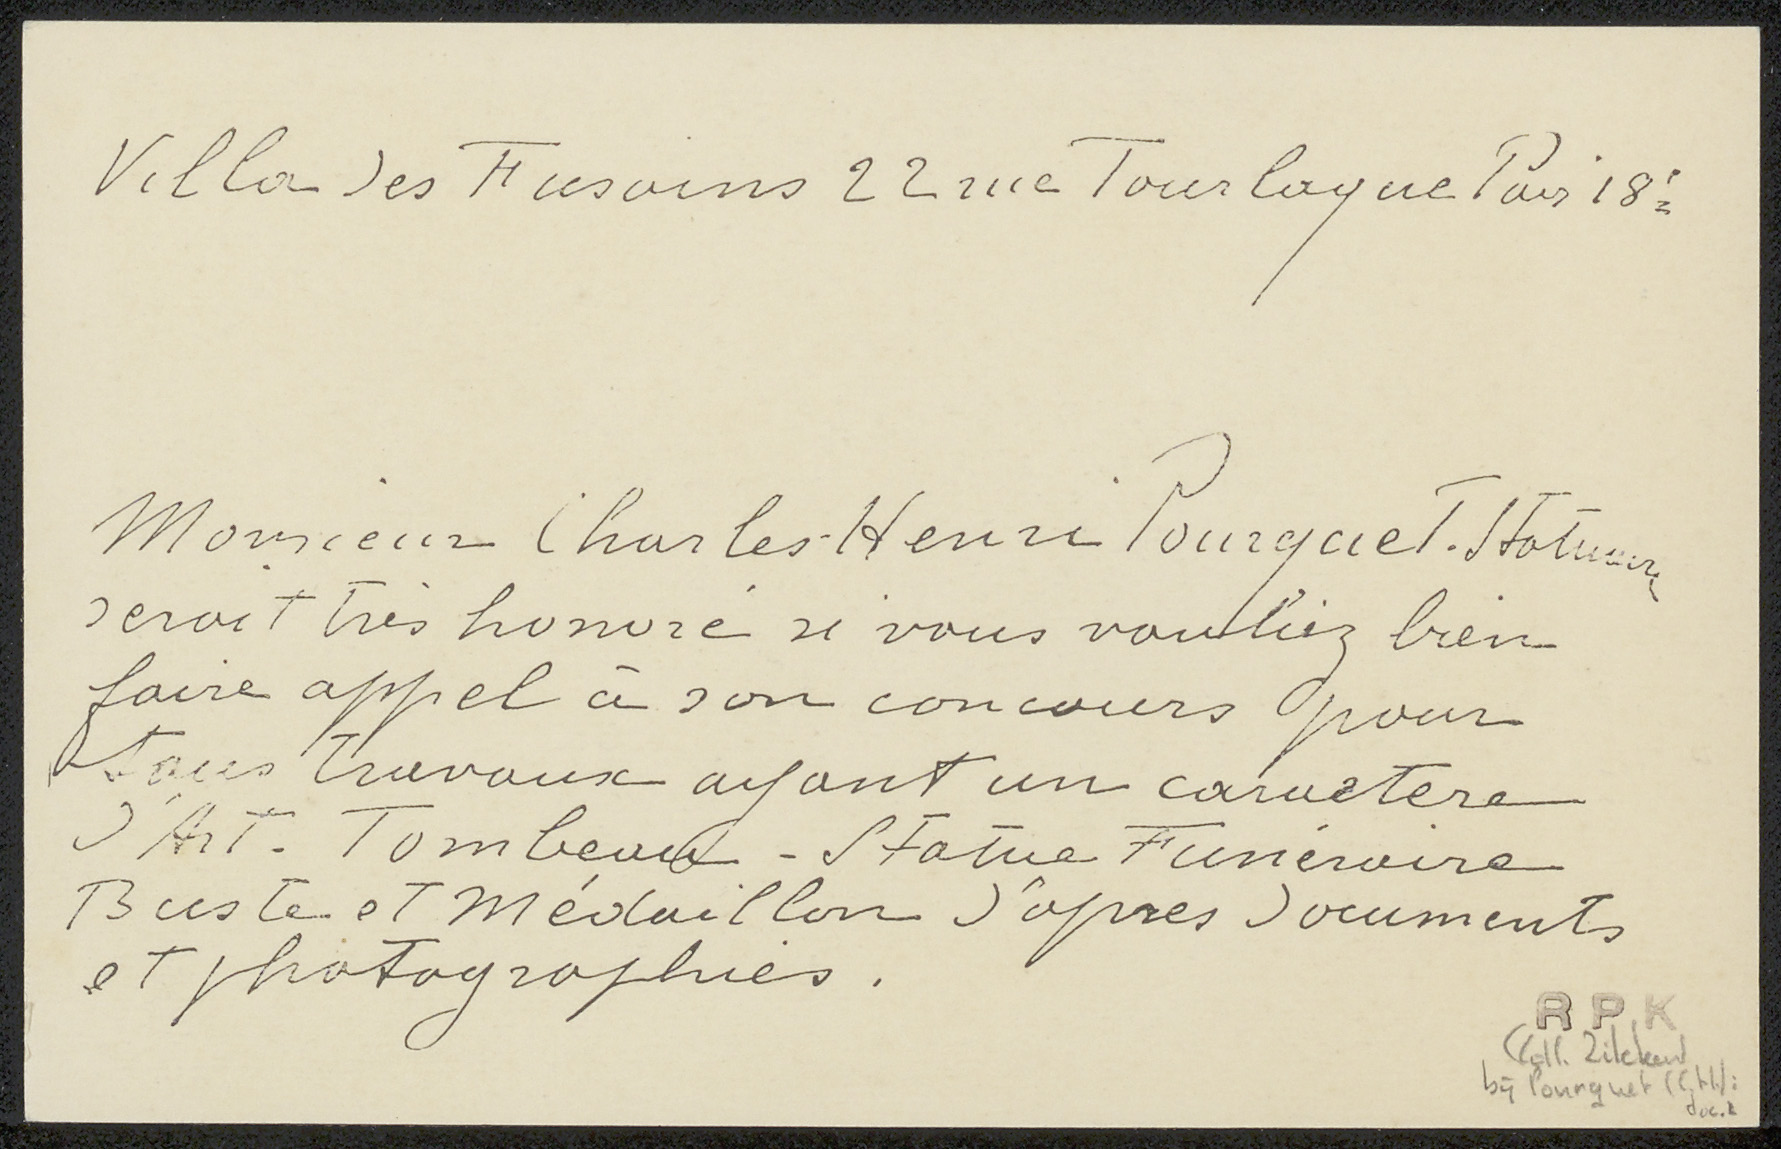 Villa des Fusains 22 rue Tourlaque Paris 18e
Monsieur Charles-Henri Pourquet. Statuaire
serait très honoré si vous vouliez bien
faire appel à son concours pour
tous travaux ayant un caractère
d'Art. Tombeau - Statue Funéraire
Buste et Médaillon d'après documents
et photographies.
RPK
(Coll. Zilcken)
bij Pourquet (C.H.):
doc. 2